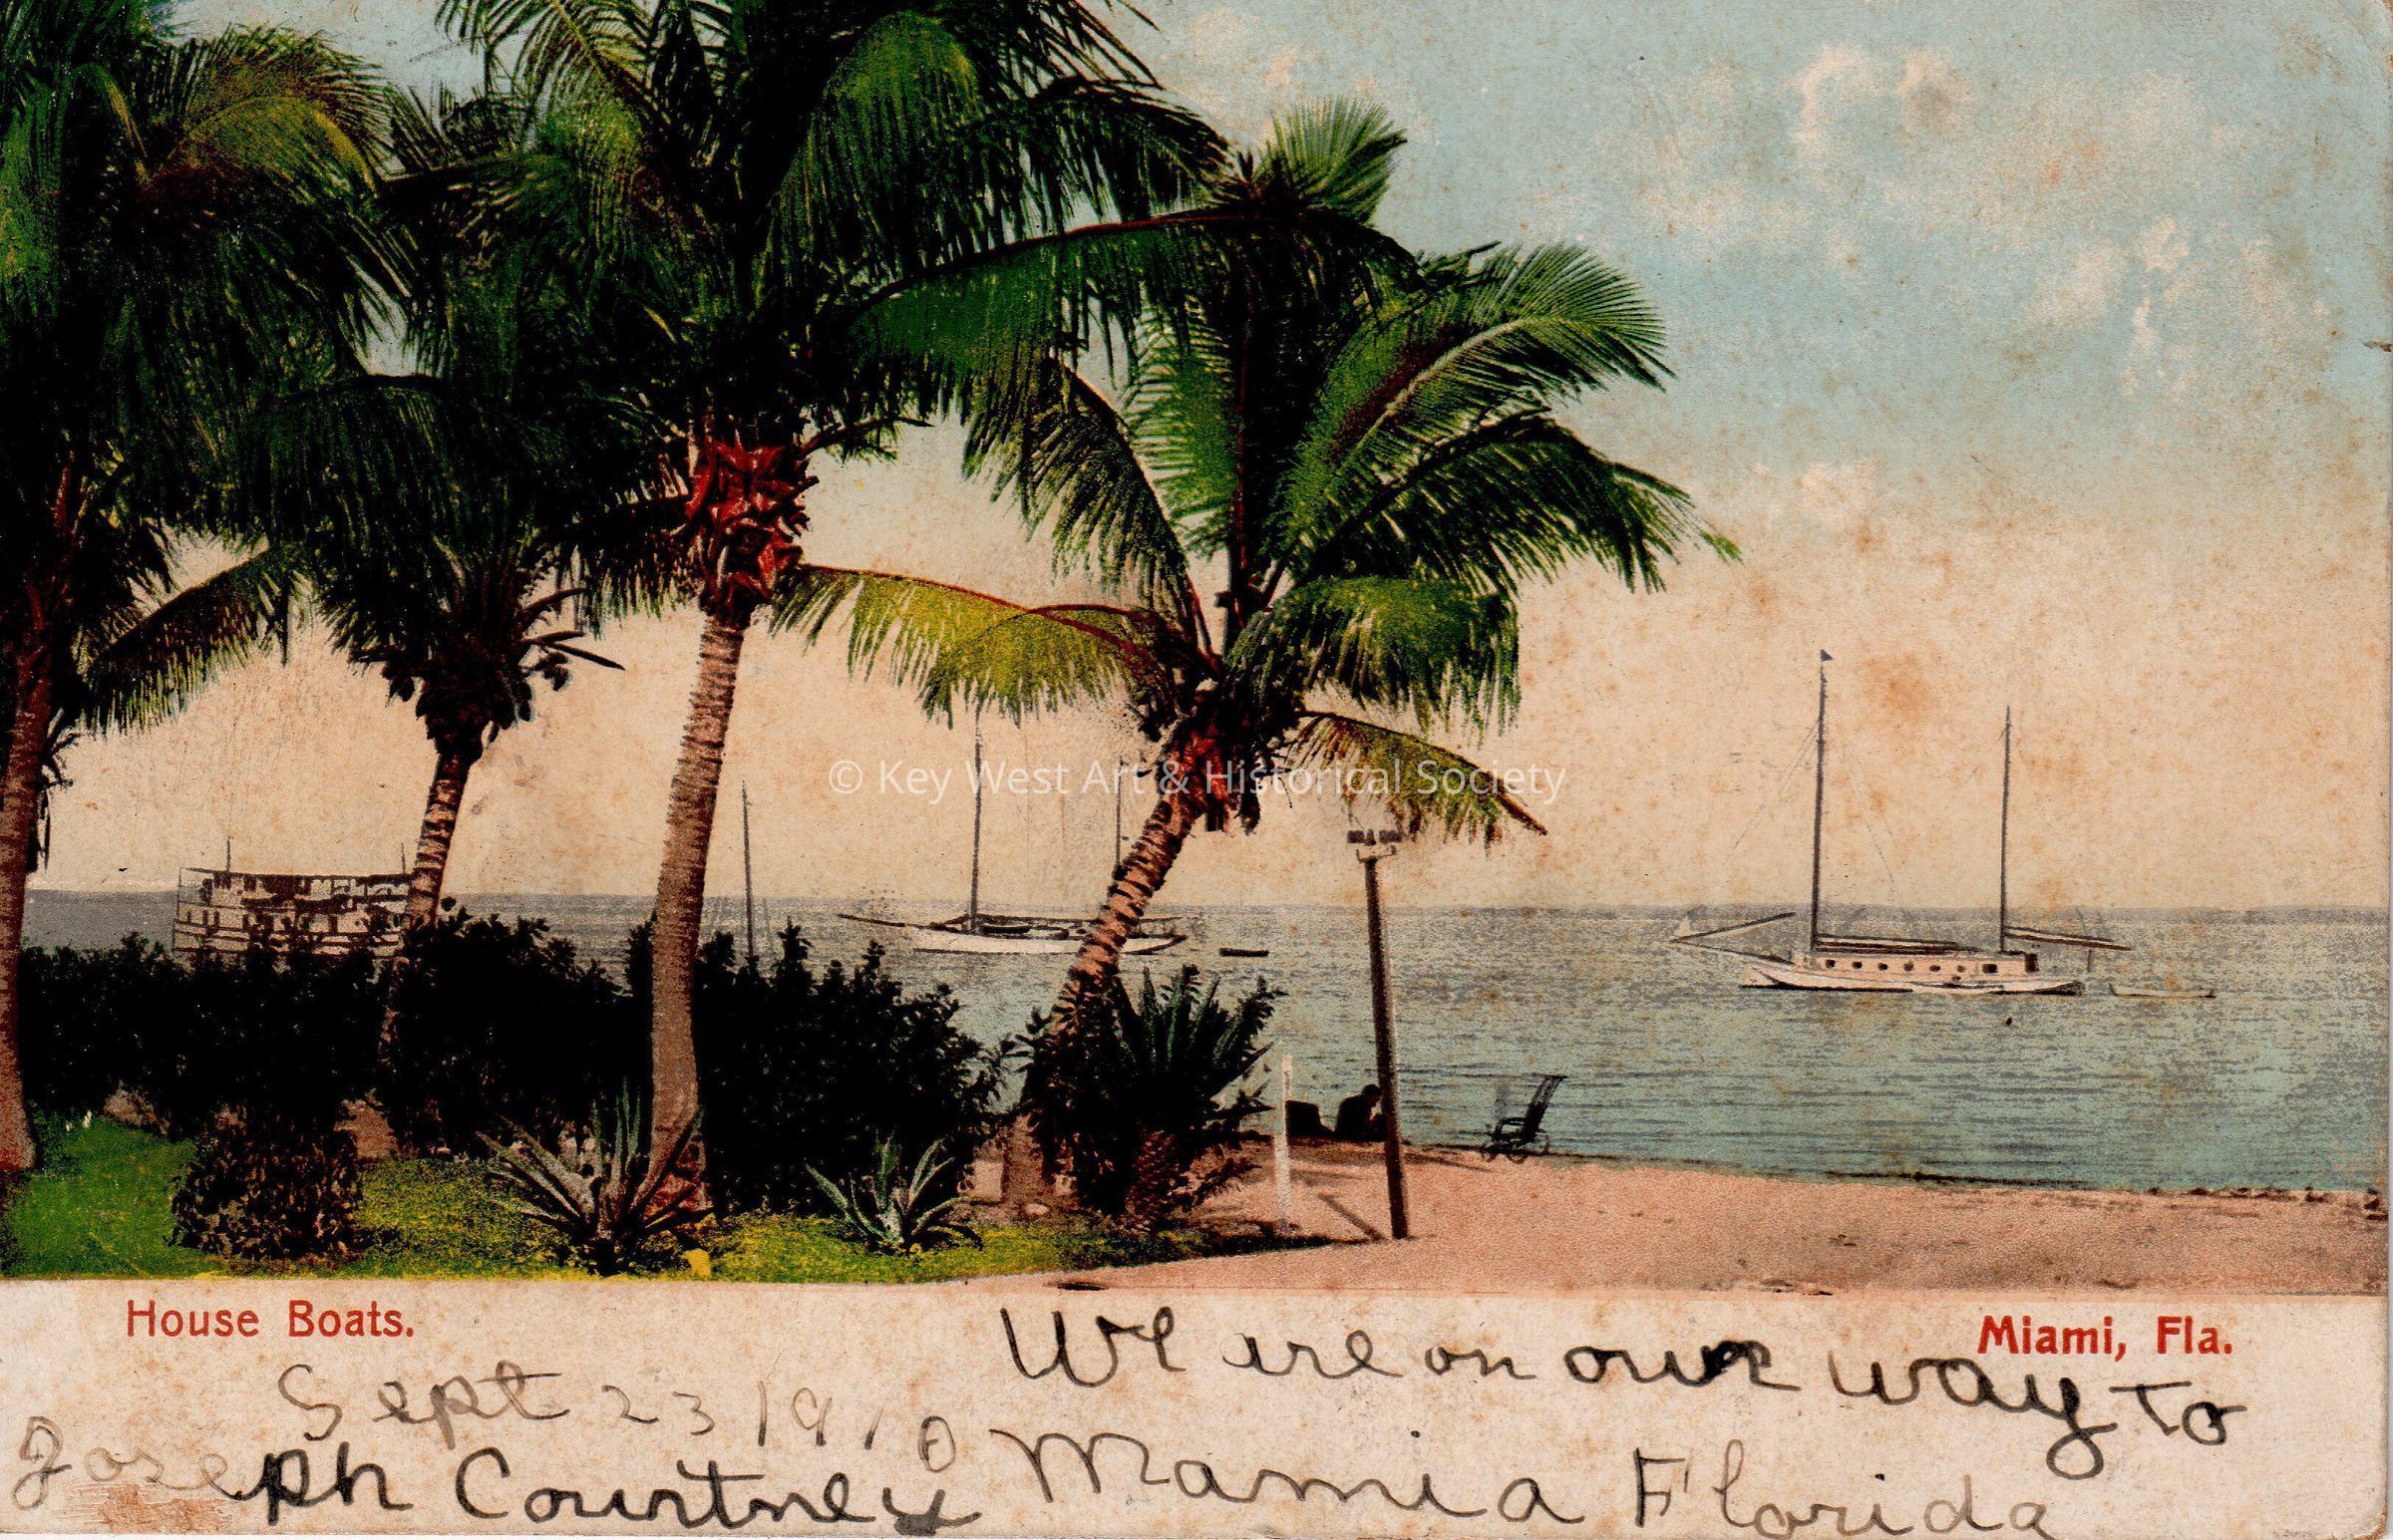 © Key West Art & Historical Society
House Boats.
Miami, Fla.
Sept 23 1910
Joseph Courtney
We are on our way to
Mamia Florida